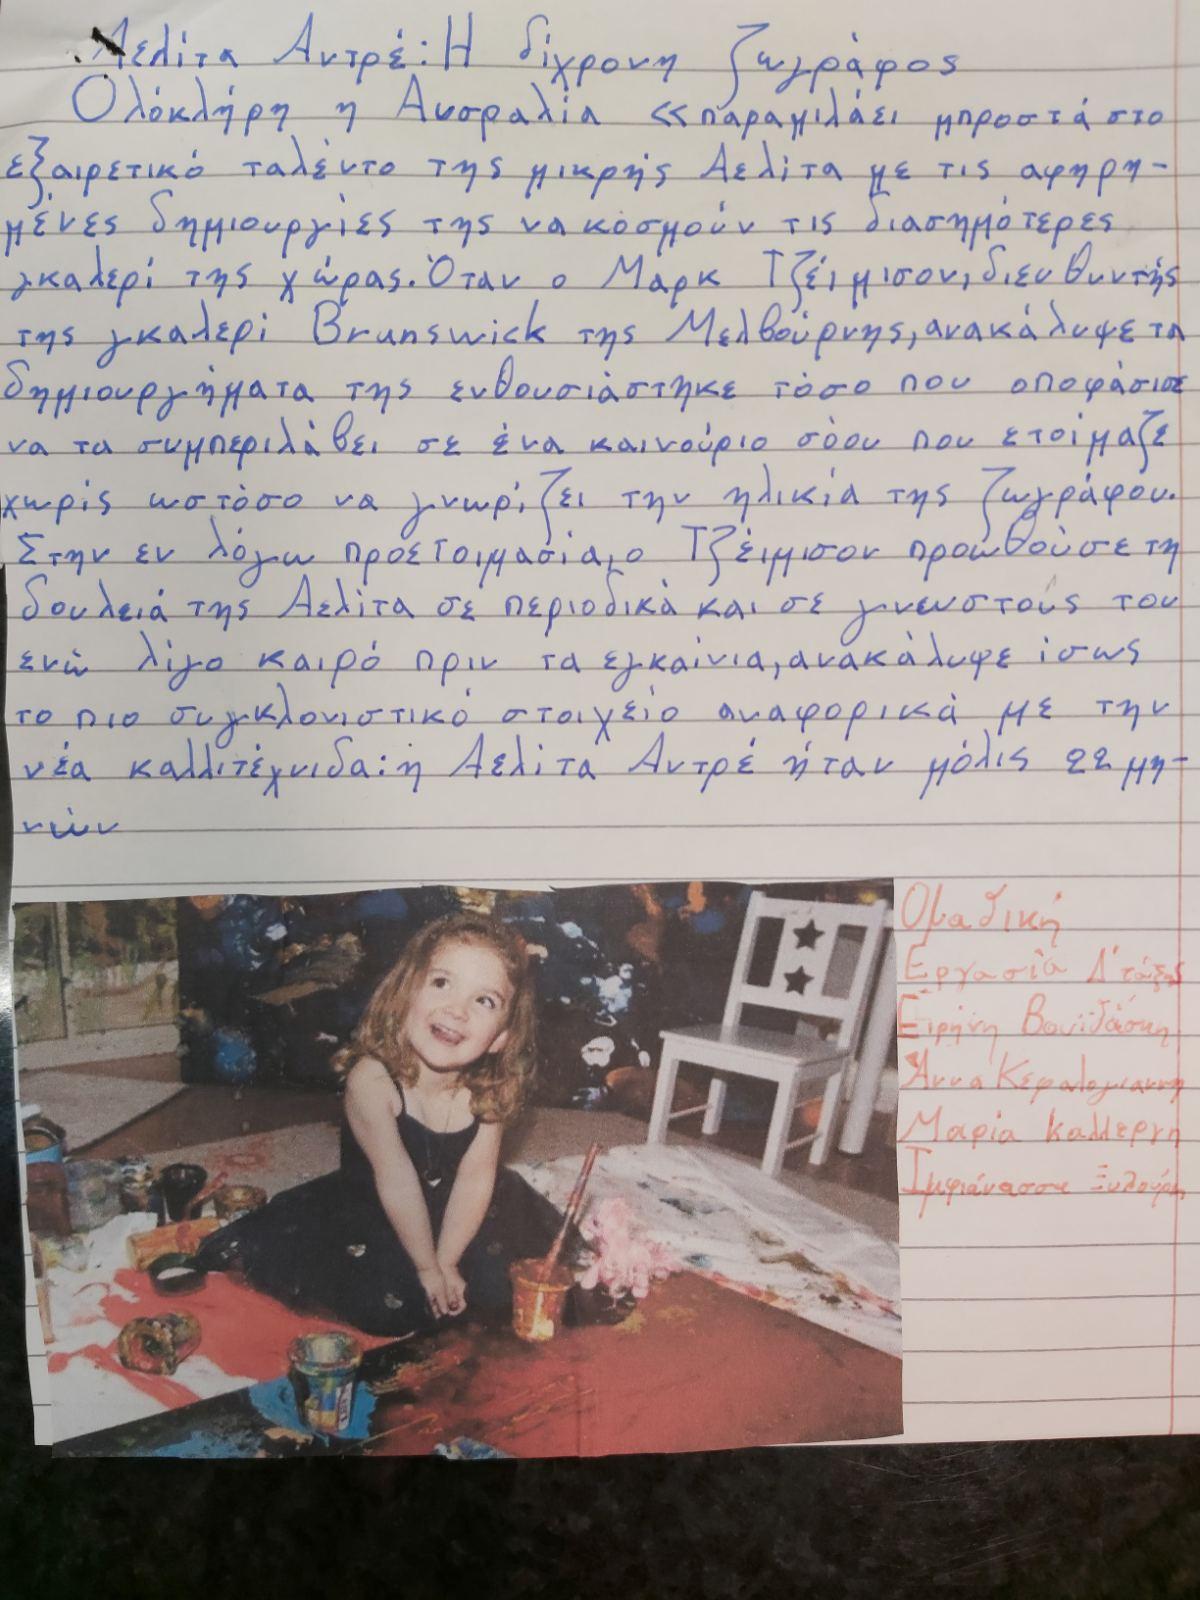 Αελίτα Αντρέ: Η δίχρονη ζωγράφος
Ολόκληρη η Αυσραλία «παραμιλάει μπροστά στο
εξαιρετικό ταλέντο της μικρής Αελίτα με τις αφηρη-
μένες δημιουργίες της να κοσμούν τις διασημότερες
γκαλερί της χώρας. Όταν ο Μαρκ Τζέιμισον, διευθυντής
της γκαλερί Brunswick της Μελβούρνης, ανακάλυψε τα
δημιουργήματα της ενθουσιάστηκε τόσο που οποφάσισε
να τα συμπεριλάβει σε ένα καινούριο σόου που ετοίμαζε
χωρίς ωστόσο να γνωρίζει την ηλικία της ζωγράφου.
Στην εν λόγω προετοιμασία, ο Τζέιμισον προωθούσε τη
δουλειά της Αελίτα σε περιοδικά και σε γνωστούς του
ενώ λίγο καιρό πριν τα εγκαίνια, ανακάλυψε ίσως
το πιο συγκλονιστικό στοιχείο αναφορικά με την
νέα καλλιτέχνιδα: η Αελίτα Αντρέ ήταν μόλις 22 μη-
νών
Ομαδική
Εργασία Δ' τάξης
Ειρήνη
Άννα Κεφαλογιαννη
Μαρία Καλλεργη
Ξυλούρη